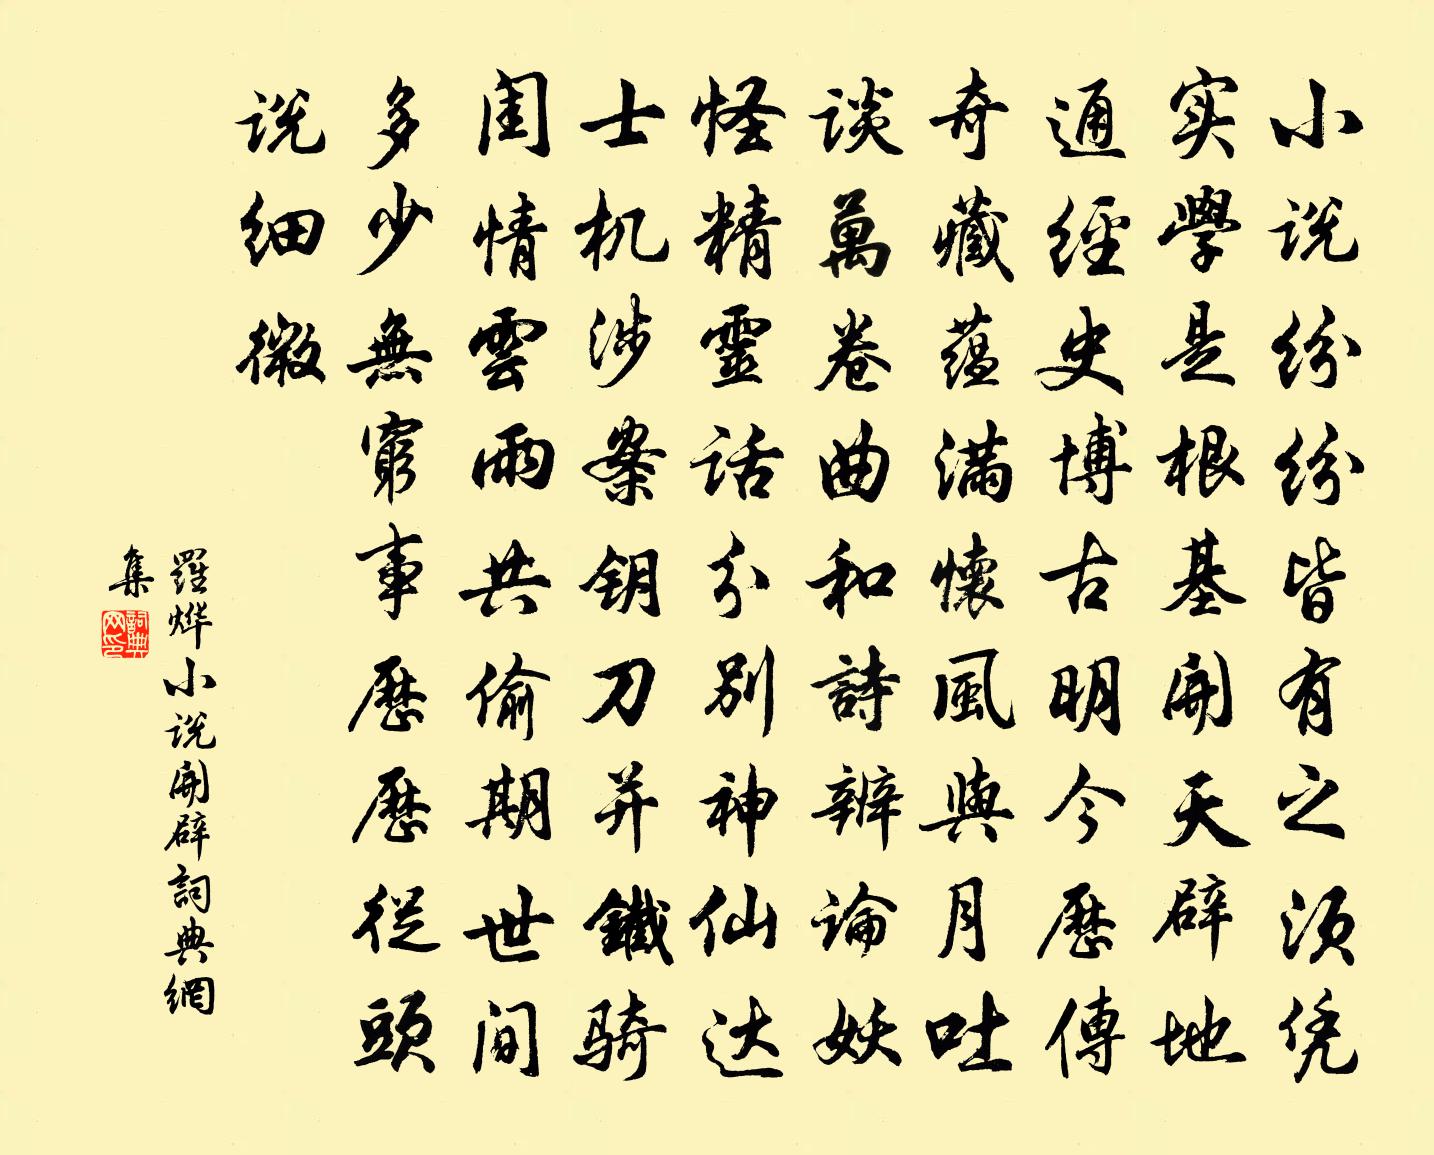 小说纷纷皆有之须凭
实學是根基開天辟地
通經史博古明今歷傳
奇藏蕴满懷風與月吐
谈萬卷曲和詩辨论妖
怪精靈话分别神仙达
士机涉案钥刀并鐵骑
闺情雲雨共偷期世间
多少無窮事歷歷從頭
说细微
羅烨小说開辟詞典網
集
詞典网印